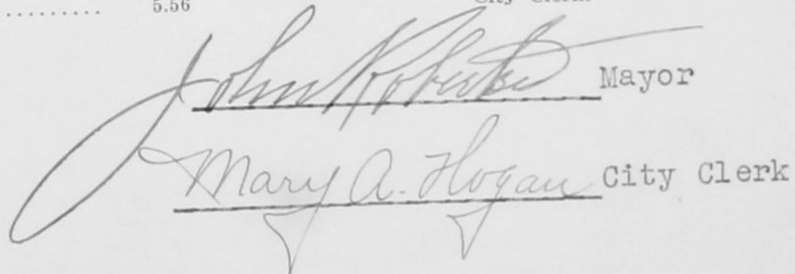 ......... 5.56 City Clerk.
John Roberts Mayor
Mary A. Hogan City Clerk